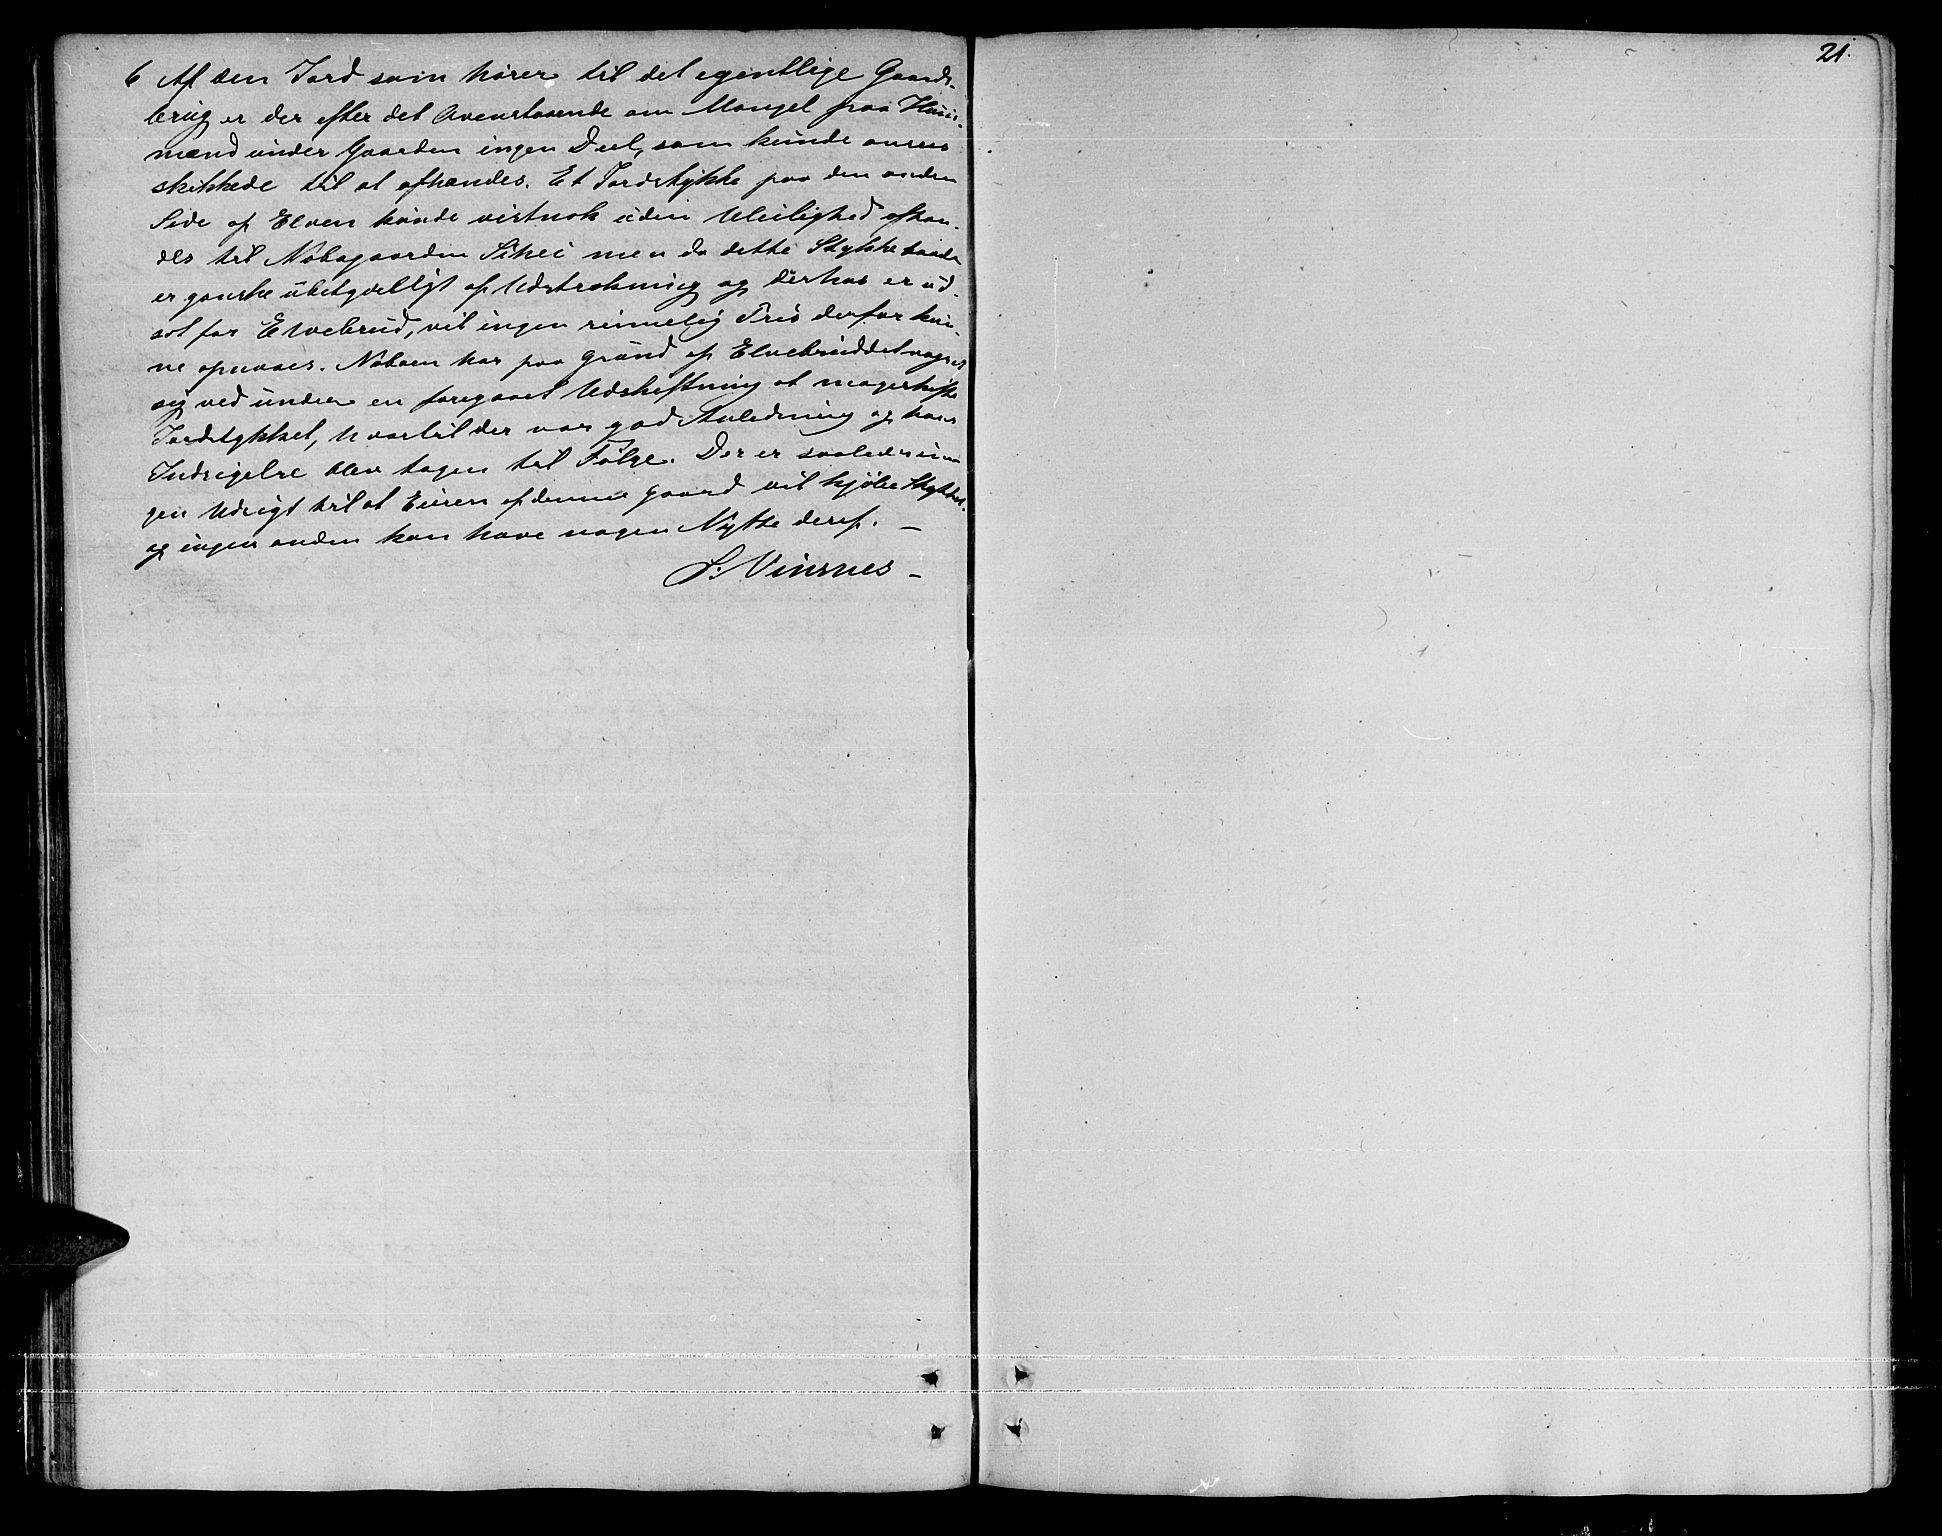 21.
6 Af den Jord som hører til det egentlige Gaards-
brug er der efter det Ovenstaaende om Mangel paa Huus-
mænd under Gaarden ingen Deel, som kunde ansees
skikkede til at afhændes. Et Jordstykke paa den anden
Side af Elven kunde vistnok uden Uleilighed afhæn-
des til Nabogaarden men da dette Stykke baade
er ganske ubetydeligt af Udstrækning og derhos er ud-
sat for Elvebrud, vil ingen rimelig Priis derfor kun-
ne opnaaes. Naboen har paa Grund af Elvebruddet vægret
sig ved under en foregaaet Udskiftning at mageskifte
Jordstykket, hvortil der var god Anledning og hans
Indsigelse blev tagen til Følge. Der er saaledes in-
gen Udsigt til at Eieren af denne Gaard vil kjøbe Stykket.
og ingen anden kan have nogen Nytte deraf. —
S. Vinsnes —